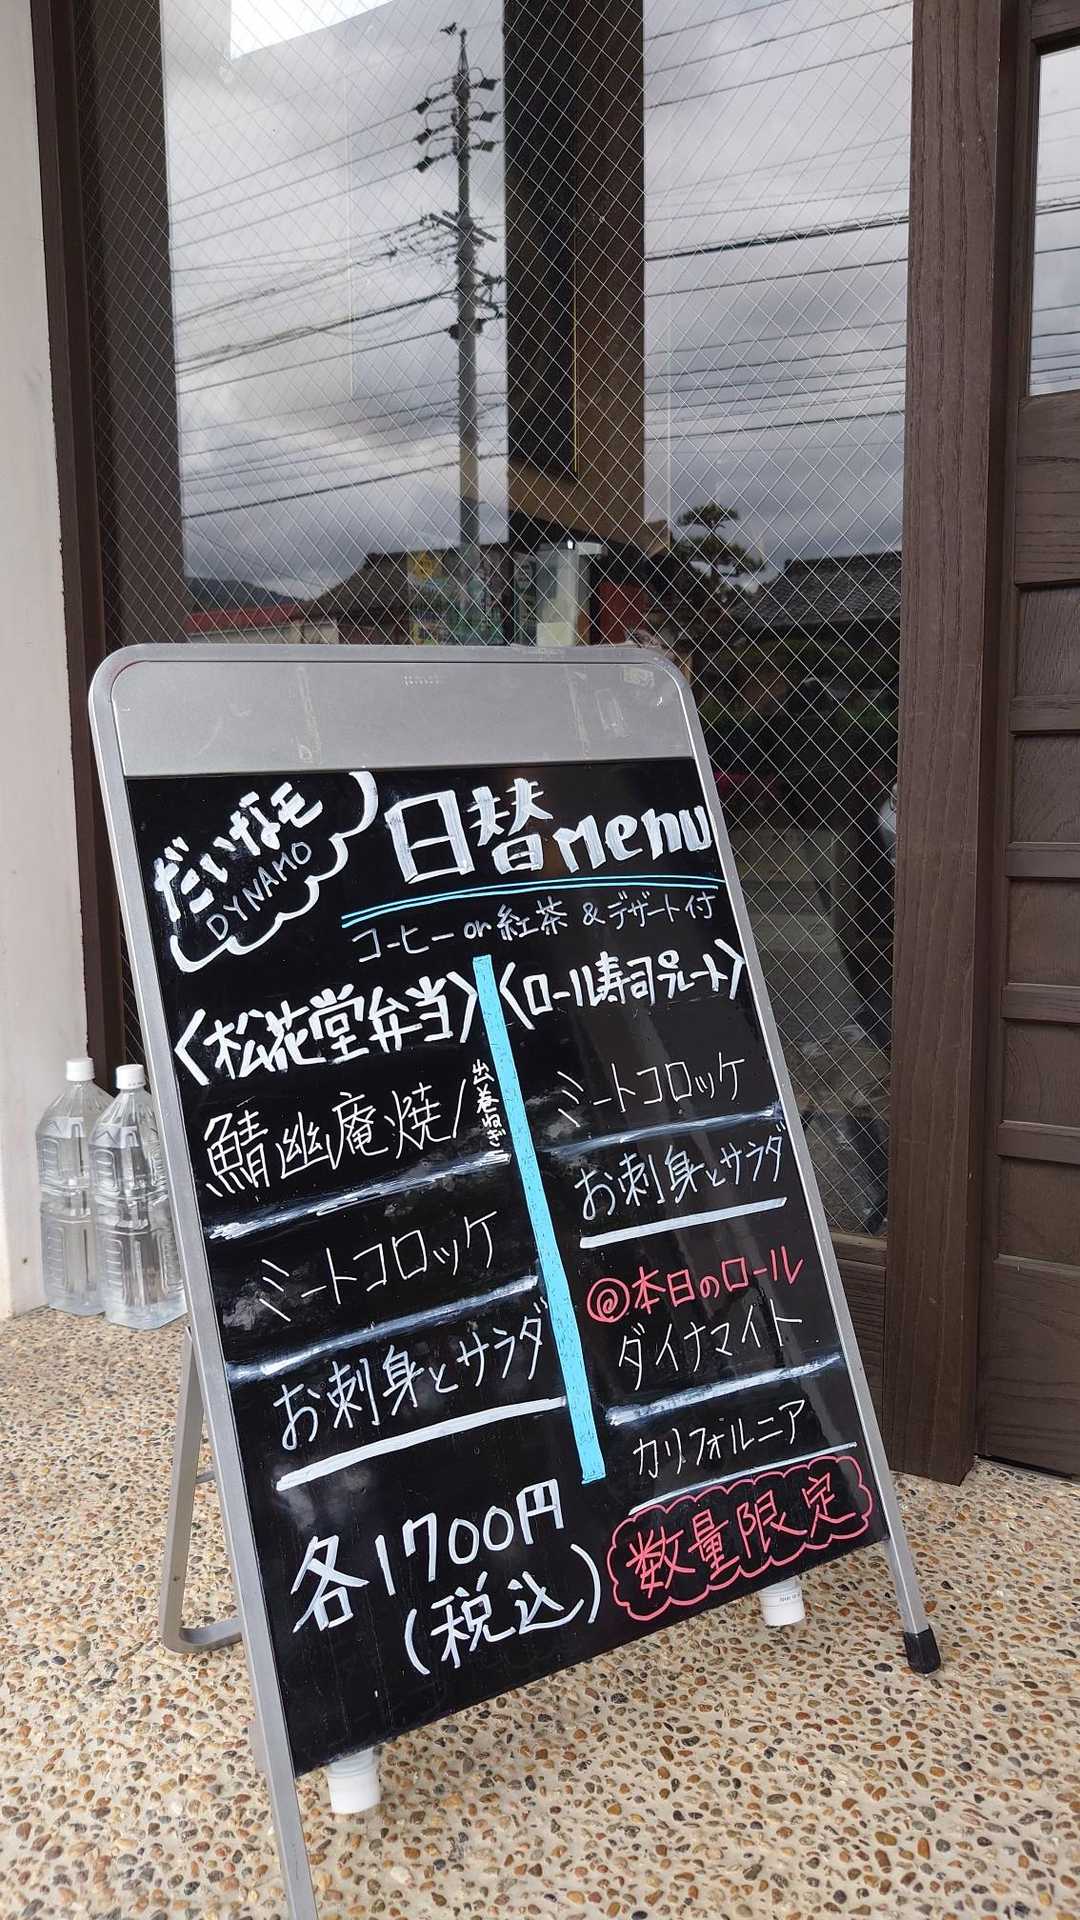 だいなモ
DYNAMO
日替Menu
コーヒー or 紅茶 & デザート付
〈松花堂弁当〉
鯖幽庵焼/出巻ねぎ
ミートコロッケ
お刺身とサラダ
〈ロール寿司プレート〉
ミートコロッケ
お刺身とサラダ
@本日のロール
ダイナマイト
カリフォルニア
各1700円
(税込)
数量限定